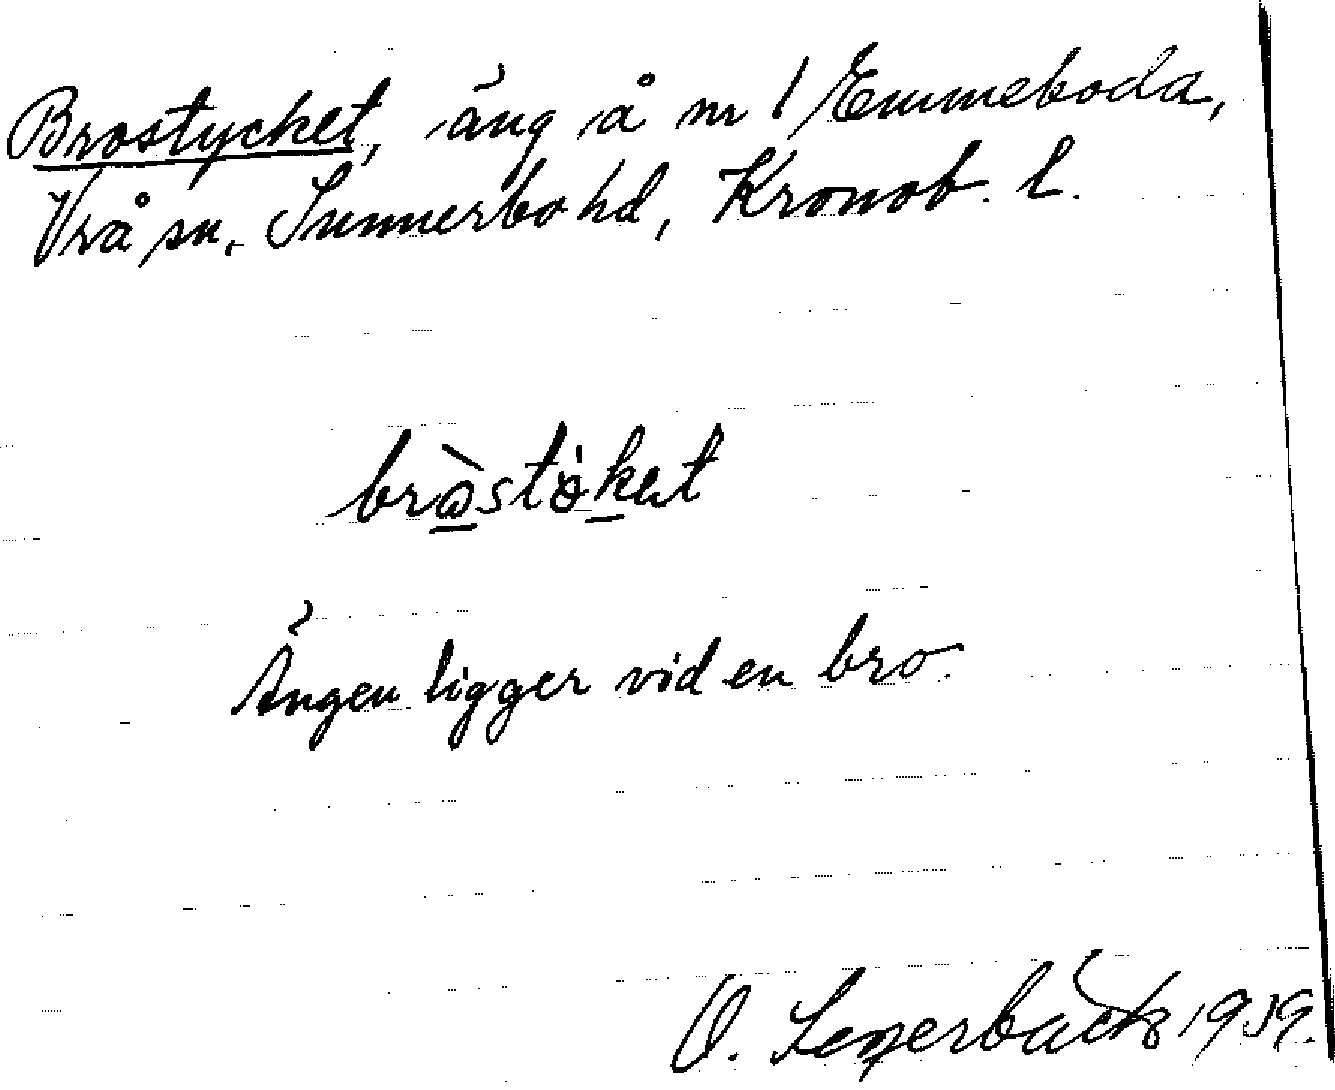 Brostycket, äng å nr 1 Emmeboda,
Vrå sn, Sunnerbo hd, Kronob. l.
brò̱stö̀ḵet
Ängen ligger vid en bro.
O. Legerbäck 1939.